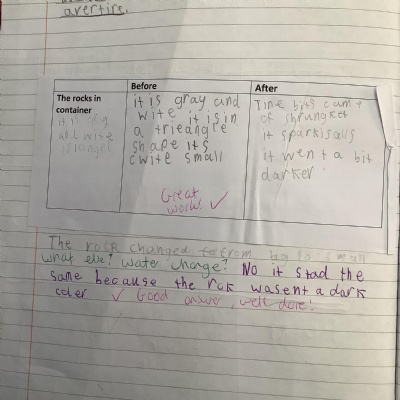 avertire.
Before
After
The rocks in
container
it is gray and
wite it is in
a trieangle
shape its
cwite small
Tine bits cam
of shrunket
it sparkisalls
it went a bit
darker
Great
work! ✓
The rock changed to from big to small
what else? water change? No it stad the
same because the rck wasent a dark
coler ✓ Good answer, well done!